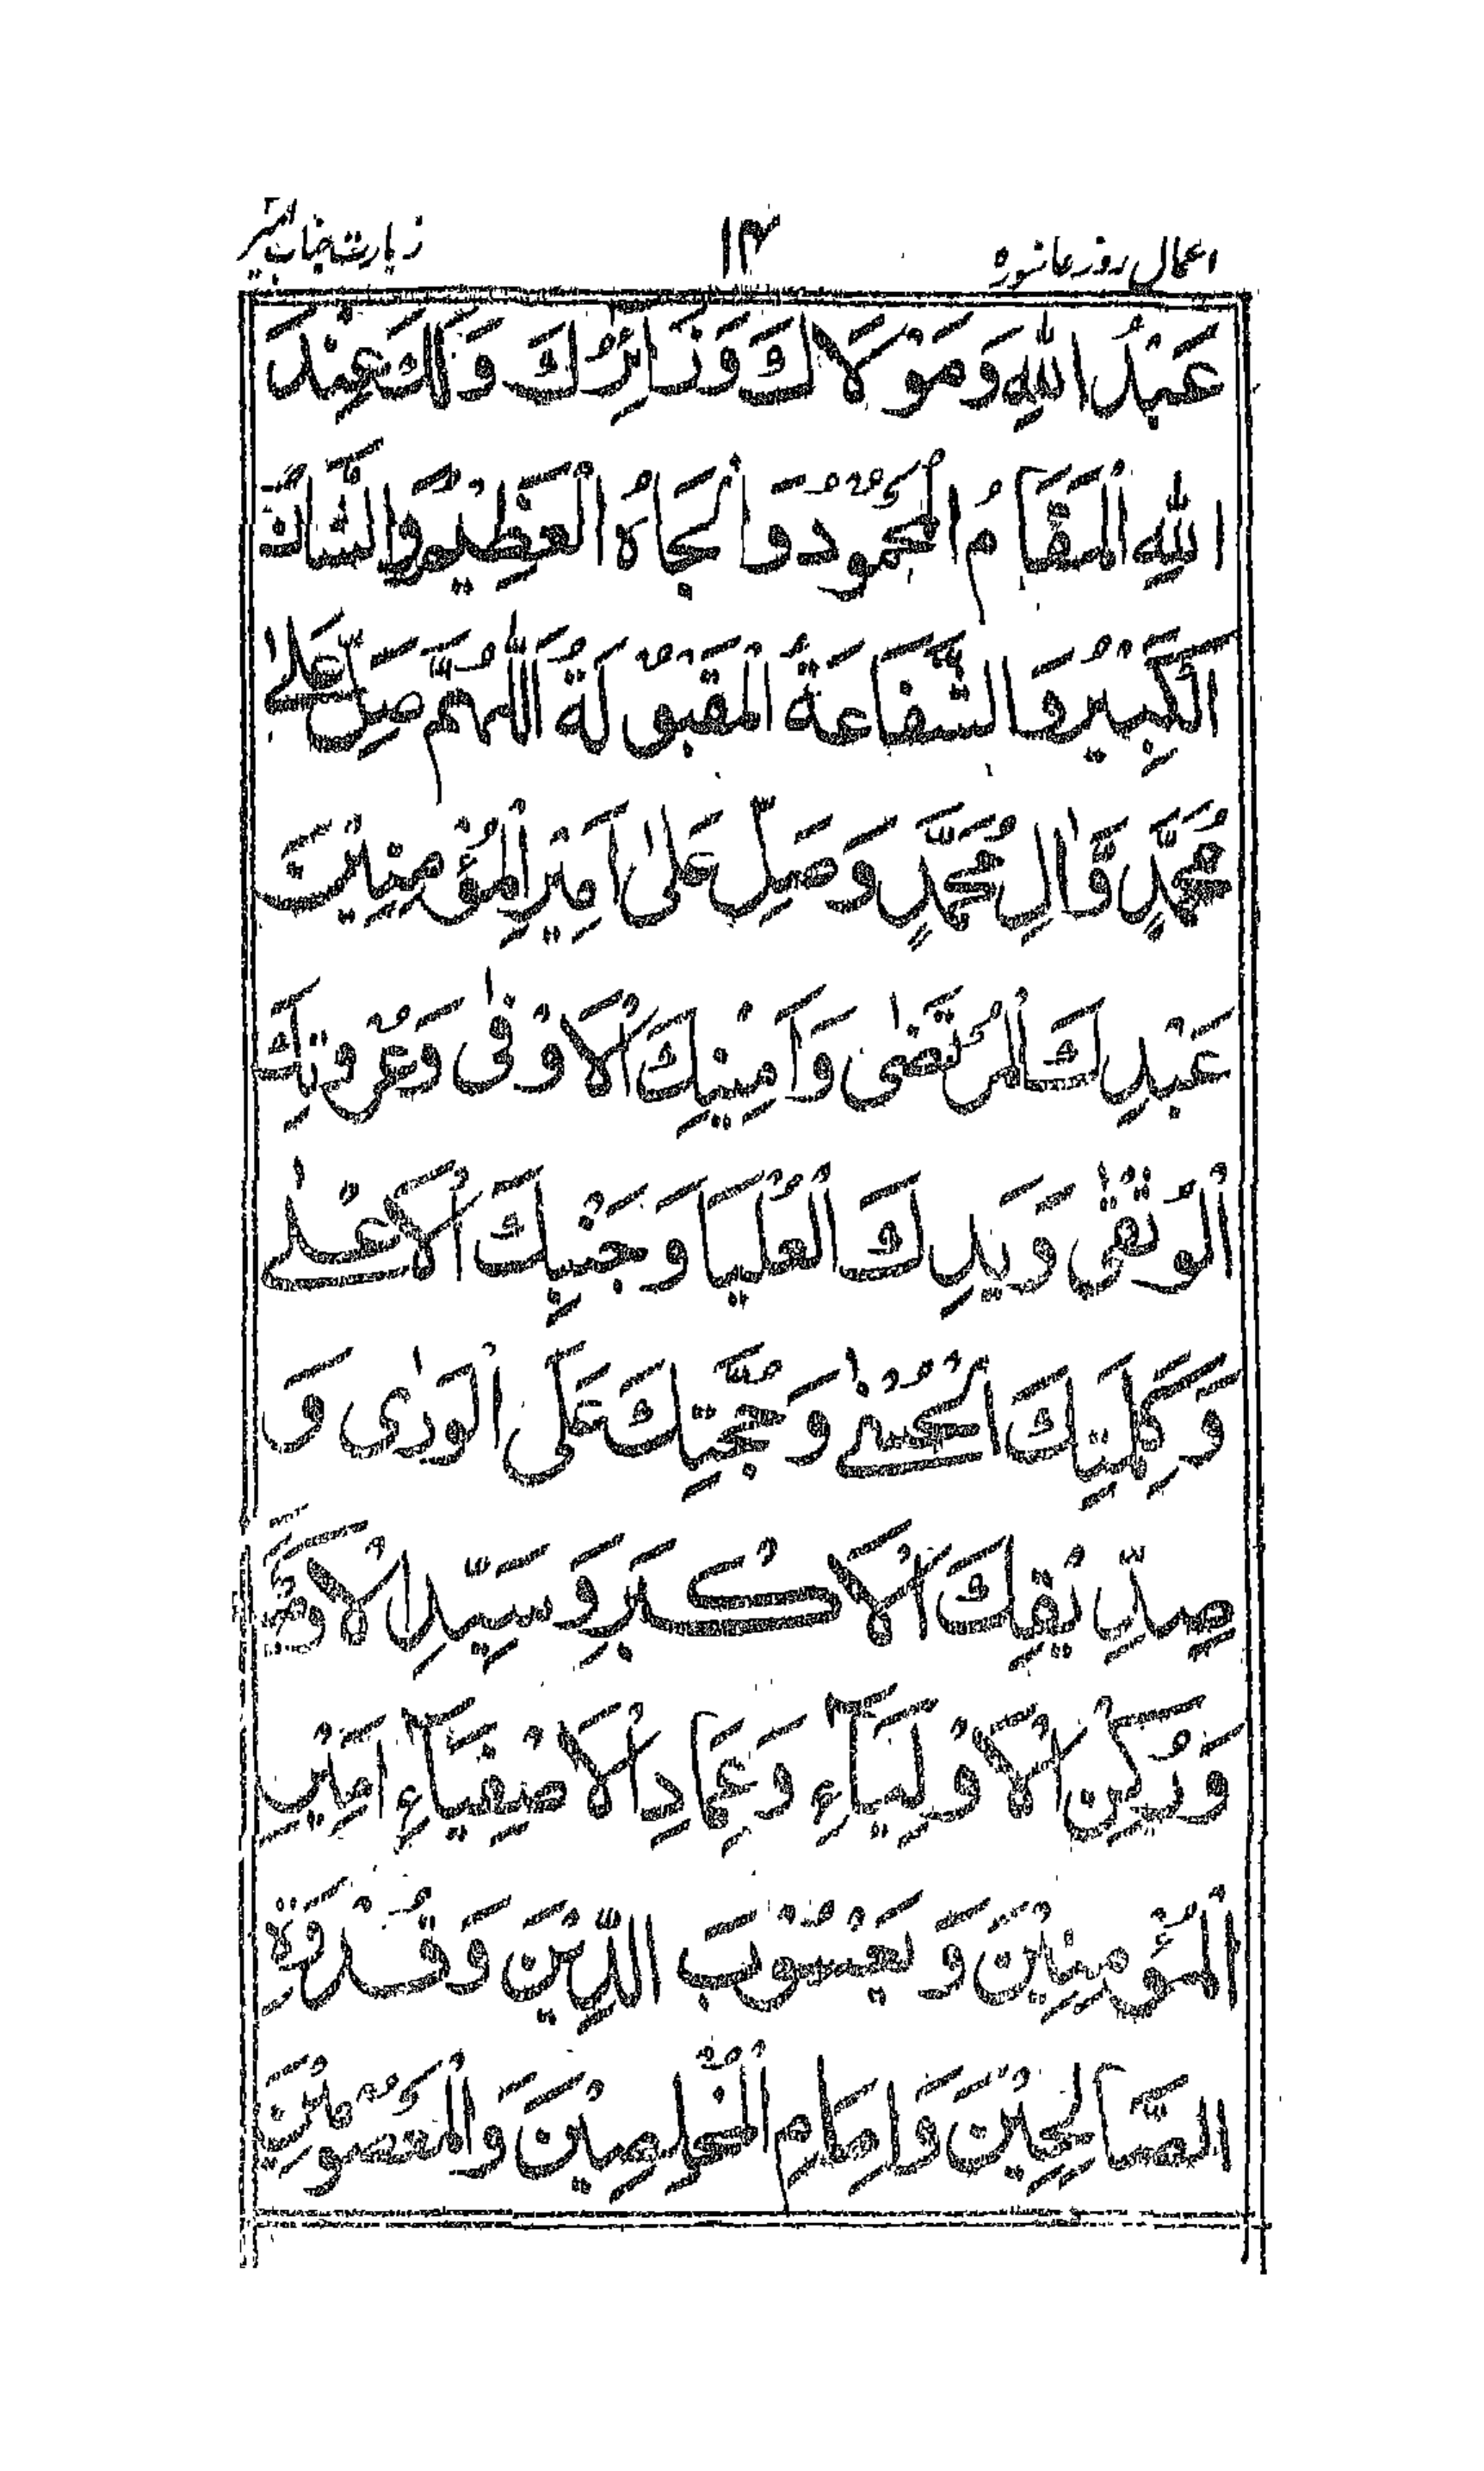 اعمال روز عاشوره ۱۴ زیارت جناب امیر
عَبْدُ اللهِ وَمَوْلَاكَ وَزَائِرُكَ وَلَكَ عِنْدَ
اللهِ الْمَقَامُ الْمَحْمُوْدُ وَالْجَاهُ الْعَظِيْمُ وَالشَّانُ
الْكَبِيْرُ وَالشَّفَاعَةُ الْمَقْبُوْلَةُ اَللّٰهُمَّ صَلِّ عَلٰى
مُحَمَّدٍ وَّاٰلِ مُحَمَّدٍ وَصَلِّ عَلٰى اَمِيْرِ الْمُؤْمِنِيْنَ
عَبْدِكَ الْمُرْتَضٰى وَاَمِيْنِكَ الْاَوْفٰى وَعُرْوَتِكَ
الْوُثْقٰى وَيَدِكَ الْعُلْيَا وَجَنْبِكَ الْاَعْلٰى
وَكَلِمَتِكَ الْحُسْنٰى وَحُجَّتِكَ عَلَى الْوَرٰى وَ
صِدِّيْقِكَ الْاَكْبَرِ وَسَيِّدِ الْاَوْصِيَاءِ
وَرُكْنِ الْاَوْلِيَآءِ وَعِمَادِ الْاَصْفِيَآءِ اَمِيْرِ
الْمُؤْمِنِيْنَ وَيَعْسُوْبِ الدِّيْنِ وَقُدْوَةِ
الصَّالِحِيْنَ وَاِمَامِ الْمُخْلِصِيْنَ وَالْمَعْصُوْمِيْنَ